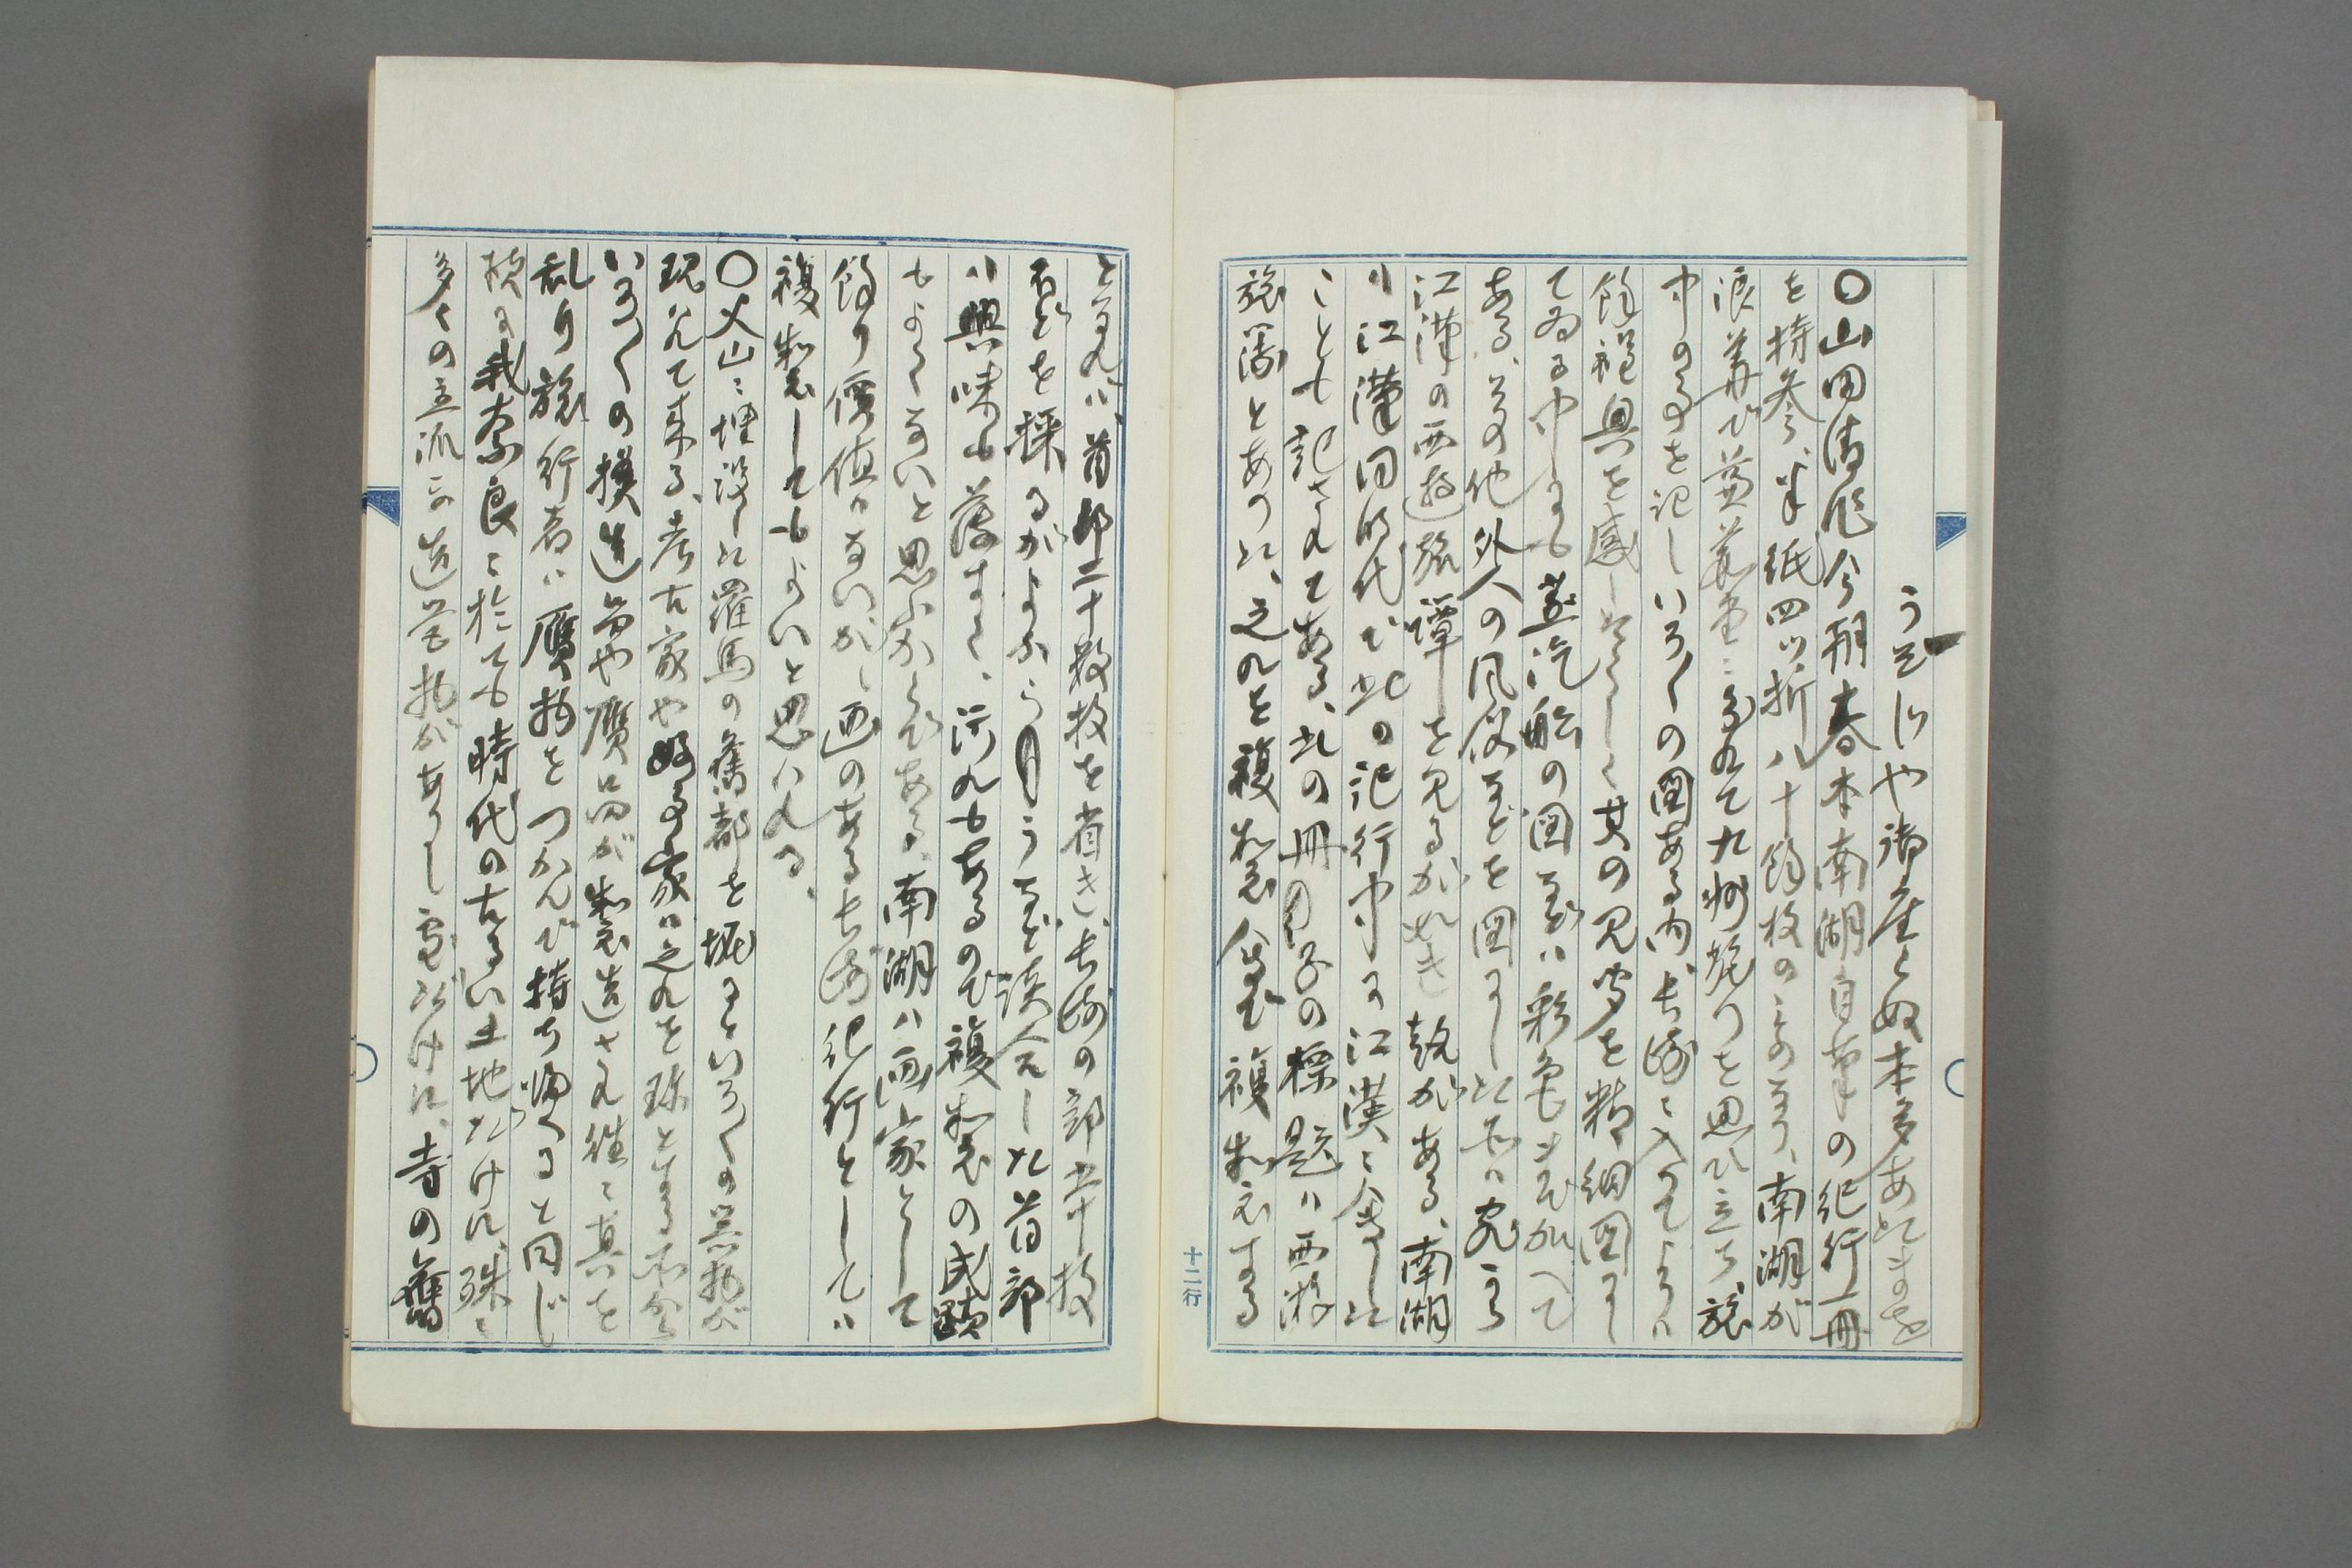 うそじや御座らぬ本多あたまを
〇山田清作今朝春木南湖自筆の紀行一冊
を持参、半紙四ツ折八十餘枚のものなり、南湖が
浪華び蒹葭堂に名残て九州先つを思ひ立ち、旅
中のことを記しいろ〱の図ある内、長崎に入つてよりハ
餘程興を感し其の見聞を精細図にし
てゐる中にも蒸汽船の図などハ彩色まで加へて
ある、その他外人の風俗などを図にした処は宛ら
江漢の西遊旅譚を見るが如き観がある、南湖
ハ江漢同時代で此の紀行中に江漢に会つした
ことも記されてある、此の冊の標題ハ西遊
旅譚とあつた、之れを複製会で複製する
となれバ、首部二十数枚を省き、長崎の部五十枚
ほどを採るがよからうなど談合した首部
ハ興味も薄すく、汚れもあるので複製の成蹟
もよくないと思ふからである、南湖ハ画家として
餘り價値はないが、画のある長崎紀行としてハ
複製してもよいと思はれる、
〇火山に埋没した羅馬の舊都を掘るといろ〱の器物が
現れて来る、考古家や好事家は之れを珍とする所から
いろ〱の模造品や贋品が製造され往々真を
乱り旅行者ハ贋物をつかんで持ち帰ること同じ
様に我奈良に於ても時代の古るい土地だけに、殊に
多くの立派な造営物がありし処だけに、寺の舊
十二行